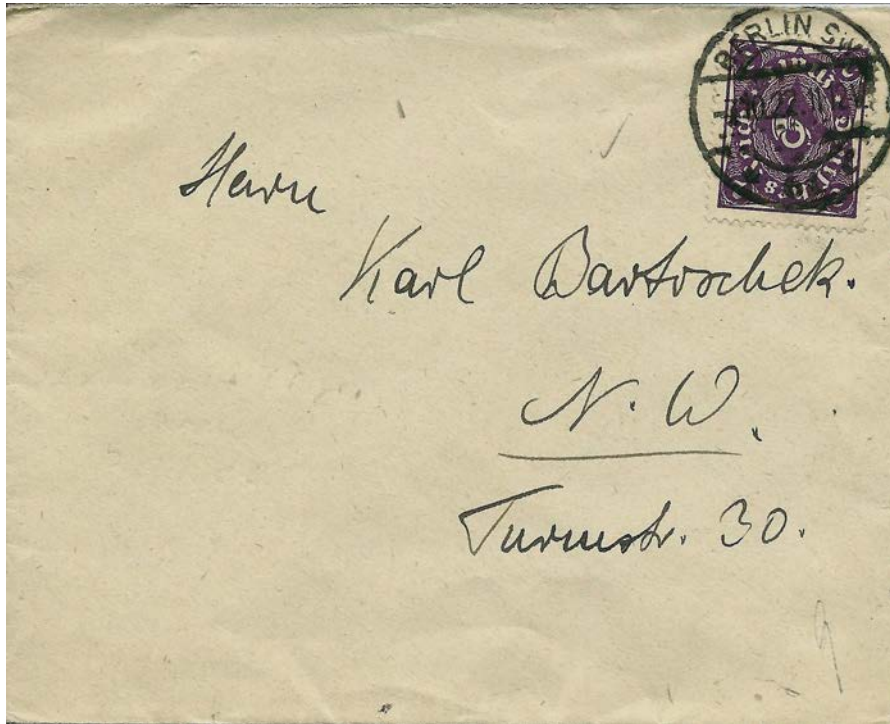 BERLIN SW
Herrn
Karl Bartoschek.
N. W.
Turmstr. 30.